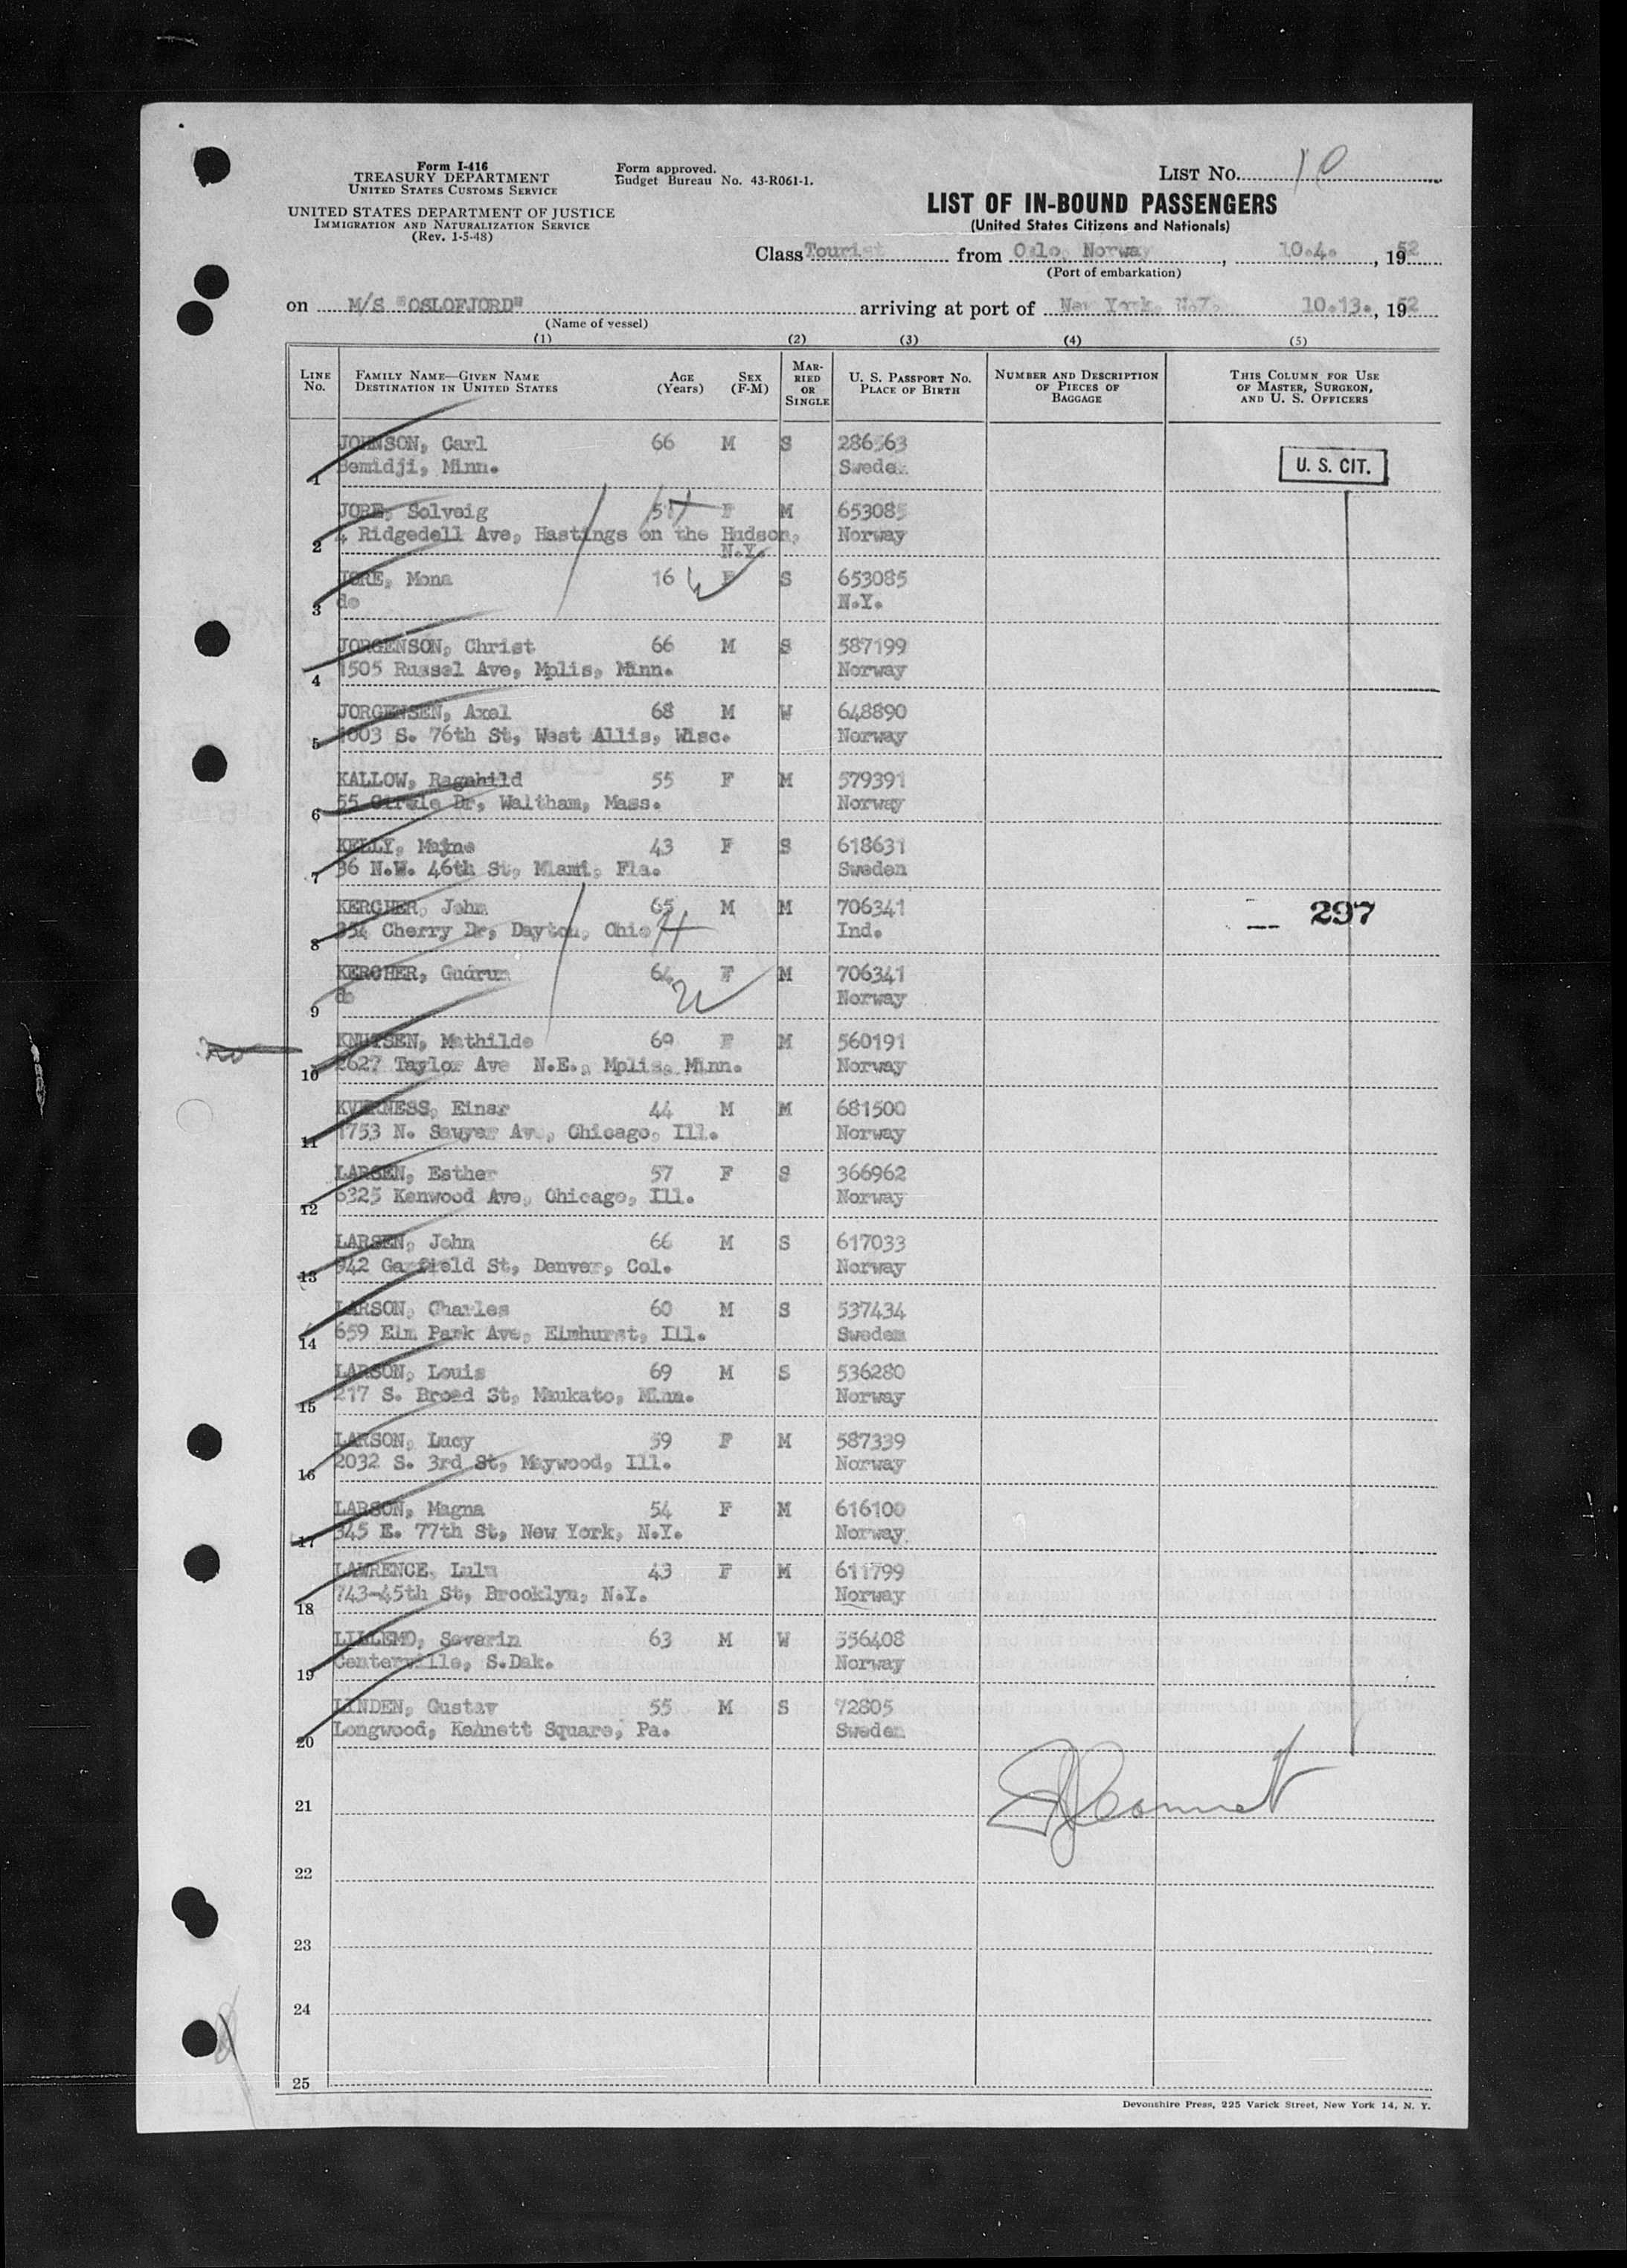 Form I-416
TREASURY DEPARTMENT
UNITED STATES CUSTOMS SERVICE
UNITED STATES DEPARTMENT OF JUSTICE
IMMIGRATION AND NATURALIZATION SERVICE
(Rev. 1-5-48)
Form approved.
Budget Bureau No. 43-R061-1.
LIST No. 10
LIST OF IN-BOUND PASSENGERS
(United States Citizens and Nationals)
Class Tourist from Oslo, Norway, 10.4., 1952
(Port of embarkation)
on M/S "OSLOFJORD" arriving at port of New York, N.Y. 10.13., 1952
(Name of vessel)
(1) (2) (3) (4) (5)
LINE No. FAMILY NAME—GIVEN NAME DESTINATION IN UNITED STATES AGE (Years) SEX (F-M) MARRIED OR SINGLE U. S. PASSPORT No. PLACE OF BIRTH NUMBER AND DESCRIPTION OF PIECES OF BAGGAGE THIS COLUMN FOR USE OF MASTER, SURGEON, AND U. S. OFFICERS
JOHNSON, Carl 66 M S 286563
1 Bemidji, Minn. Sweden U. S. CIT.
JORE, Solveig 51 F M 653085
2 4 Ridgedell Ave, Hastings on the Hudson, Norway
N.Y.
JORE, Mona 16 F S 653085
3 do N.Y.
JORGENSON, Christ 66 M S 587199
4 1505 Russel Ave, Mplis, Minn. Norway
JORGENSEN, Axel 68 M W 648890
5 1003 S. 76th St, West Allis, Wisc. Norway
KALLOW, Ragnhild 55 F M 579391
6 55 Circle Dr, Waltham, Mass. Norway
KELLY, Majne 43 F S 618631
7 36 N.W. 46th St, Miami, Fla. Sweden
KERCHER, John 65 M M 706341 297
8 354 Cherry Dr, Dayton, Ohio Ind.
KERCHER, Gudrun 64 F M 706341
9 do Norway
KNUTSEN, Mathilde 69 F M 560191
10 2627 Taylor Ave N.E., Mplis, Minn. Norway
KVERNESS, Einar 44 M M 681500
11 1753 N. Sawyer Av., Chicago, Ill. Norway
LARSEN, Esther 57 F S 366962
12 6325 Kenwood Ave, Chicago, Ill. Norway
LARSEN, John 66 M S 617033
13 942 Garfield St, Denver, Col. Norway
LARSON, Charles 60 M S 537434
14 659 Elm Park Ave, Elmhurst, Ill. Sweden
LARSON, Louis 69 M S 536280
15 217 S. Broad St, Maukato, Minn. Norway
LARSON, Lucy 59 F M 587339
16 2032 S. 3rd St, Maywood, Ill. Norway
LARSON, Magna 54 F M 616100
17 345 E. 77th St, New York, N.Y. Norway
LAWRENCE, Lulu 43 F M 611799
18 743-45th St, Brooklyn, N.Y. Norway
LILLEMO, Severin 63 M W 556408
19 Centerville, S.Dak. Norway
LINDEN, Gustav 55 M S 72805
20 Longwood, Kennett Square, Pa. Sweden
21
22
23
24
25
Devonshire Press, 225 Varick Street, New York 14, N. Y.